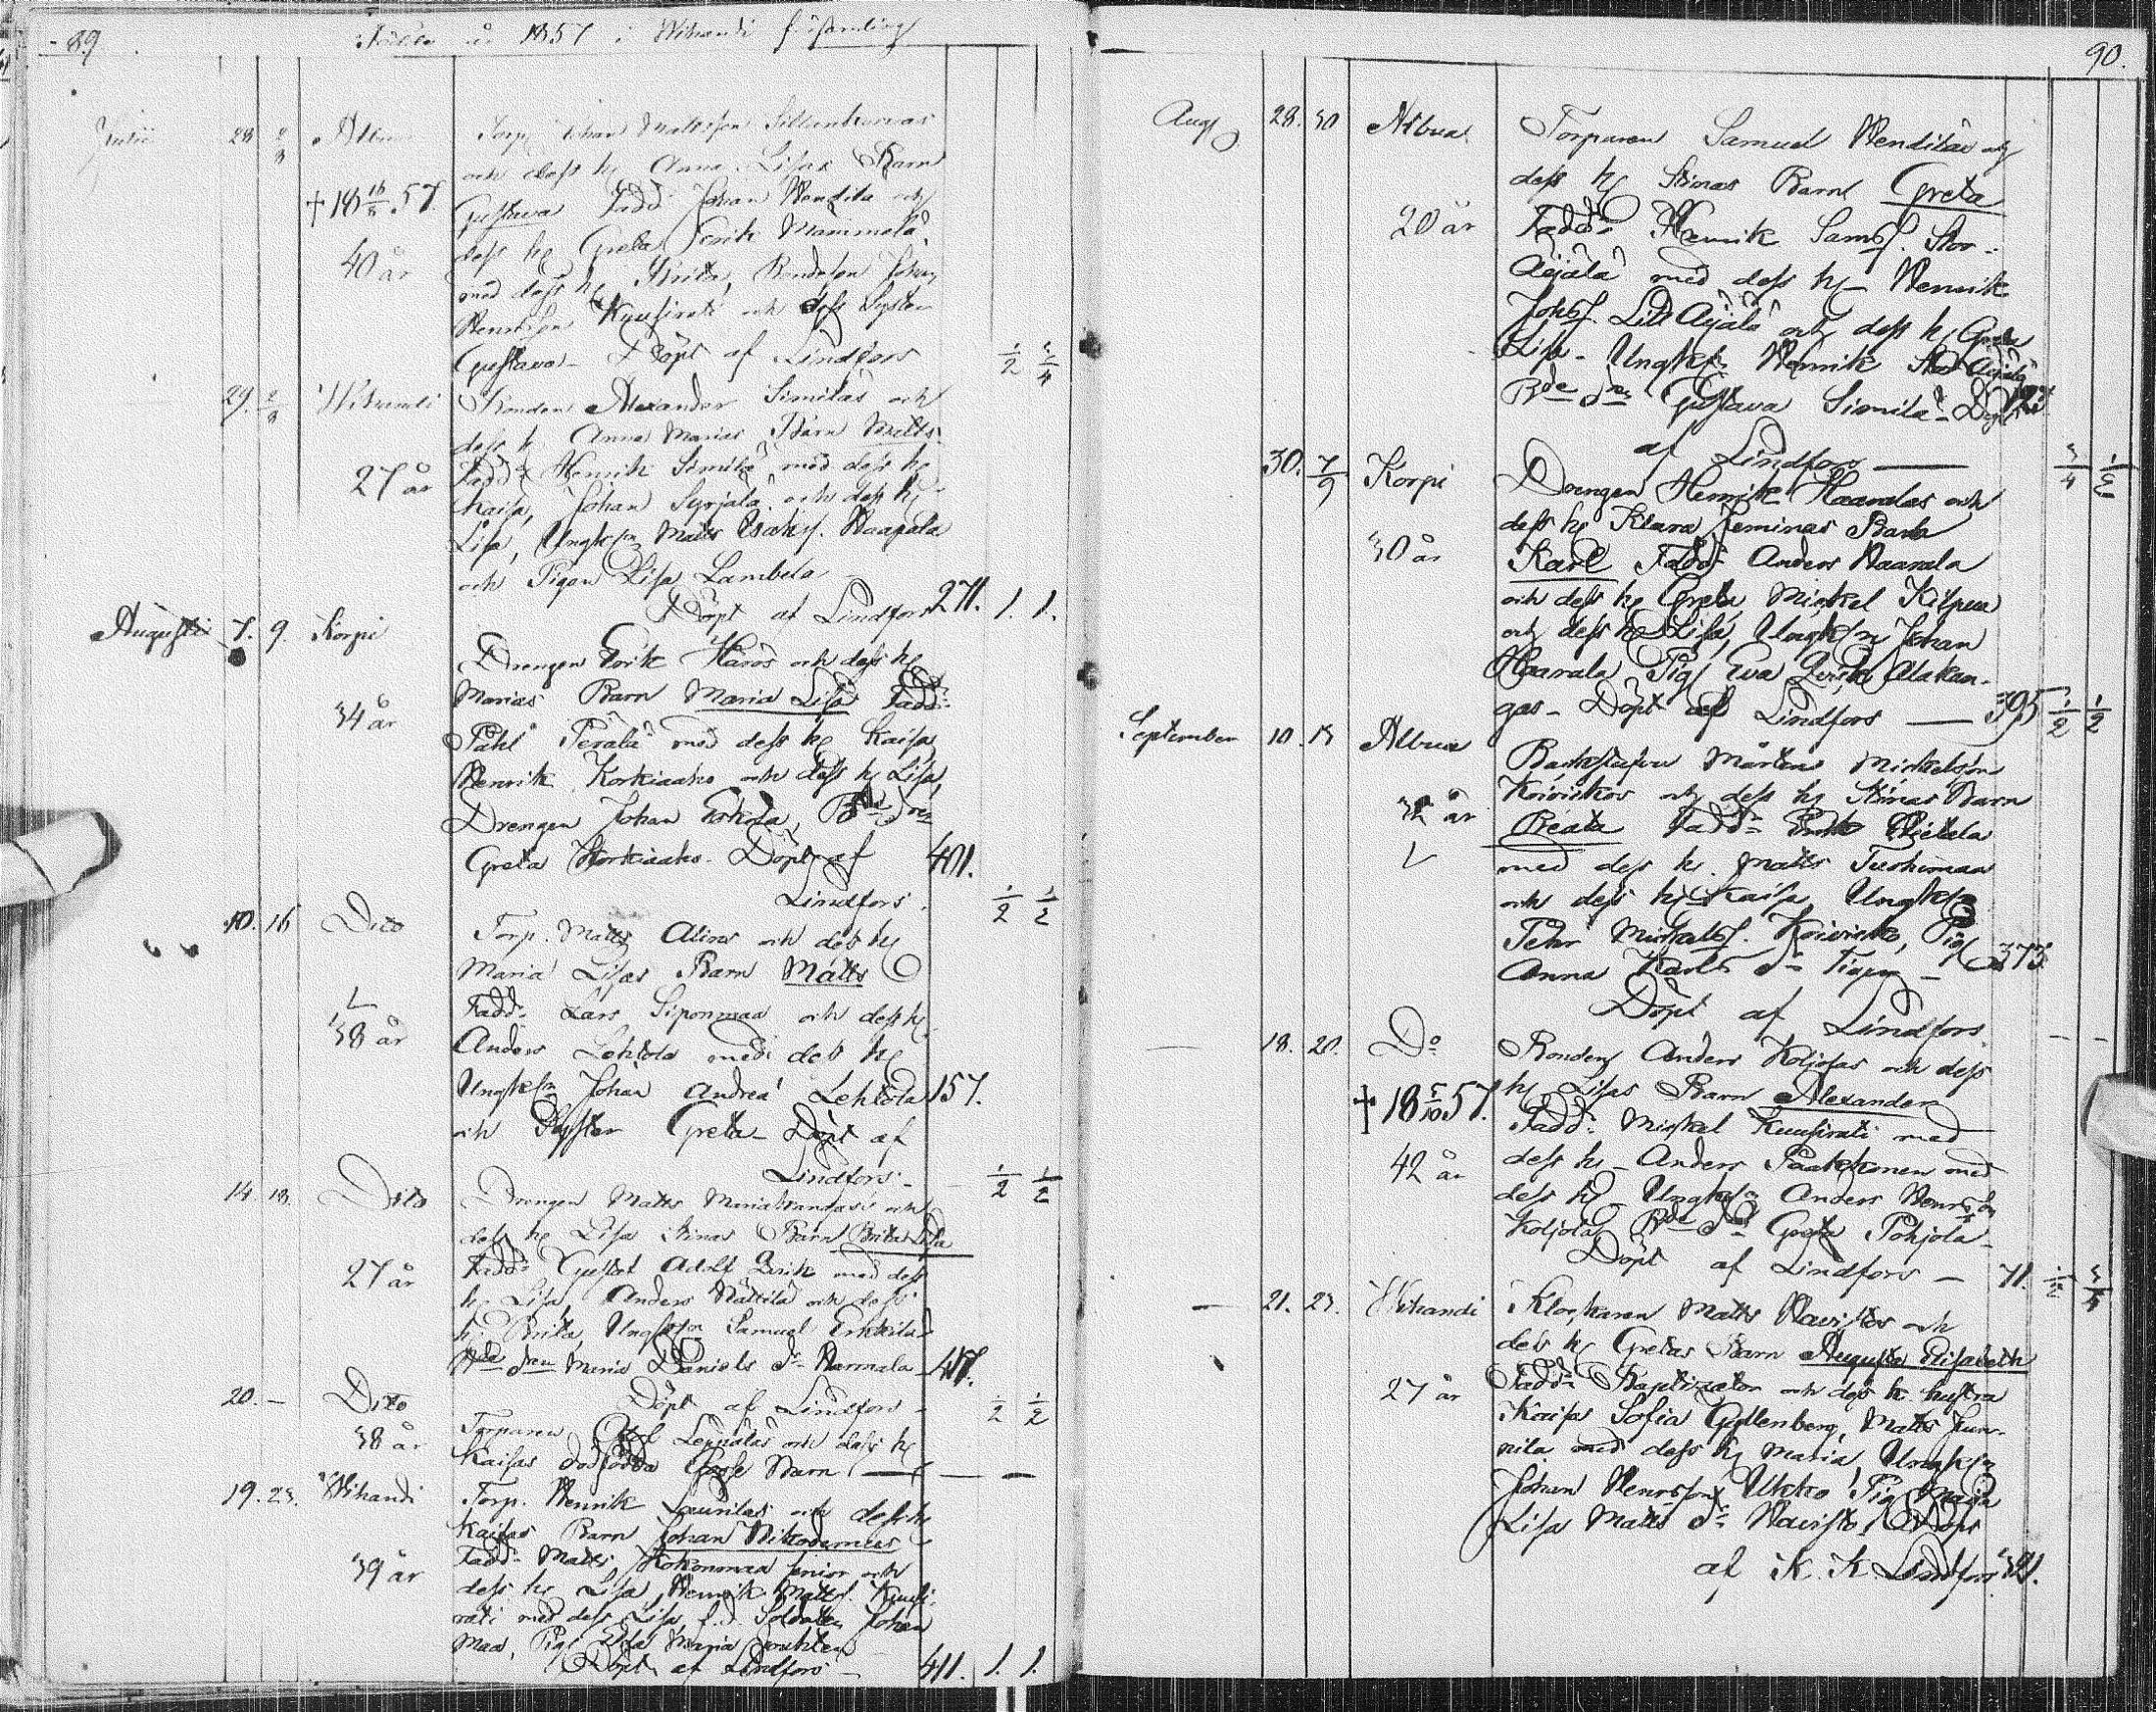 89.
Födde år 1857 i Wihandi församling
Julii 28 2/8 Albua Torp. Johan Mattsson
och dess h. Anna Lisas Barn
† 18 16/8 57. Gustava Fadd. Johan Wendila och
dess h. Greta, Erik Mammela
40 år med dess h. Brita, Bondeson Johan
Henriksson Kuusirati och dess Syster
Gustava - Döpt af Lindfors 1/2 3/4
29. 2/8 Wihandi Bonden Alexander Similäs och
dess h. Anna Marias Barn Matts.
27 år Fadd. Henrik Similä med dess h.
Kaisa, Johan Syrjälä och dess h.
Lisa, Ungk. Matts Isaksf. Haapala
och Pigan Lisa Lambela
Döpt af Lindfors 271. 1. 1.
Augusti 7. 9. Korpi
Drengen Erik Haros och dess h.
Marias Barn Maria Lisa Fadd.
34 år
Påhl Perälä med dess h. Kaisa
Henrik Korkiaaho och dess h. Lisa,
Drengen Johan Eskola, Bde dr
Greta Korkiaaho. Döpt af 401.
Lindfors. 1/2 1/2
10. 16 Dito Torp. Matts Alins och dess h.
Maria Lisas Barn Matts
Fadd. Lars Siponmaa och dess h.
38 år Anders Lehtola med dess h.
Ungk. Johan Andrea Lehtola 157.
och Syster Greta - Döpt af
Lindfors - 1/2 1/2
14. 18. Dito Drengen Matts och
dess h. Lisa Stinas Barn Brita Lisa
27 år Fadd. Gustaf Adolf Qvick med dess
h. Lisa, Anders Mattila och dess
h. Brita, Ungk. Samuel Erkkilä
Bde drn Maria Daniels dr Warmala
20. - Dito Döpt af Lindfors - 1/2 1/2
38 år Torparen Leppälas och dess h.
Kaisas dödfödda Gosse Barn — — —
19. 23. Wihandi Torp. Henrik Launilas och dess h.
Kaisas Barn Johan Nikodemus
39 år Fadd. Matts Kokonmaa senior och
dess h. Lisa, Henrik Mattsf. Kuusi-
rati med dess Lisa, f.d. Soldaten Johan
Maa, Pig. Maria
Döpt af Lindfors - 411. 1. 1.
90.
Aug 28. 30 Albua Torparen Samuel Wendiläs och
dess h. Stinas Barn Greta
20 år Fadd. Henrik Samsf. Stor-
Äijälä med dess h. Henrik
Johsf. Lill Äijälä och dess h. Greta
Lisa - Ungk. Henrik Stor Äijälä
Bde drn Gustava Similä - Döpt
af Lindfors — 3/4 1/2
30. 7/9 Korpi Drengen Henrik Haaralas och
dess h. Klara Jeminas Barn
30 år Karl Fadd. Anders Haarala
och dess h. Greta Mickel Kilpua
och dess h. Lisa, Ungk. Johan
Haarala Pig. Eva Qvick Alakan-
gas - Döpt af Lindfors — 395 1/2 1/2
September 10. 13 Albua Backstufvu Mårten Mickelsson
Koivistos och dess h. Stinas Barn
32 år Beata Fadd. Erik Pietala
med dess h. Matts Tuohimaa
och dess h. Kaisa, Ungk.
Pehr Mickelsf. Koivisto, Pig. 373.
Anna Karls dr
Döpt af Lindfors. — —
18. 20. Do Bonden Anders Koljolas och dess
† 18 5/10 57. h. Lisas Barn Alexander
Fadd. Mickel Kuusirati med
42 år dess h. - Anders Paakkonen med
dess h. - Ungk. Anders Henrsson
Koljola, Bde dr Greta Pohjola -
Döpt af Lindfors — 71. 1/2 3/4
21. 23. Wihandi Klockaren Matts Havistos och
dess h. Gretas Barn Augusta Elisabeth
27 år Fadd. Baptizator och dess k. hustru
Kaisas Sofia Gyllenberg, Matts Jun-
nila med dess h. Maria, Ungk.
Johan Henrsson Ukko, Pig. Maija
Lisa Matts dr Havisto, Döpt
af K. K Lindfors 321.